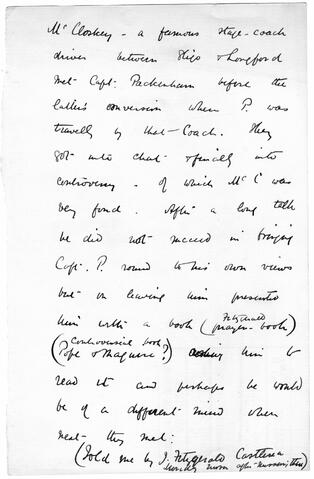 McCloskey - a famous stage-coach
driver between Sligo & Longford
met Capt. Packenham before the
latter's conversion when P. was
travellg by that Coach. They
got into chat & finally into
controversy - of which McC was
very fond. After a long talk
he did not succeed in bringing
Capt. P. round to his own views
but on leaving him presented
him with a book (Fitzgerald prayer-book)
(Controversial book? Pope & Maguire?) asking him to
read it and perhaps he would
be of a different mind when
next they met.
(Told me by J. Fitzgerald Castlerea
Monday morn after Mission,